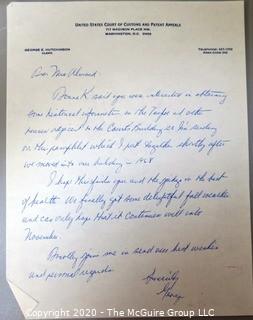 UNITED STATES COURT OF CUSTOMS AND PATENT APPEALS
717 MADISON PLACE NW.
WASHINGTON, D.C. 20439
GEORGE E. HUTCHINSON
CLERK
TELEPHONE:
AREA CODE 202
Dear Mrs
said you were interested in obtaining
some historical information on the and other
houses adjacent to the Courts Building so I'm sending
on the pamphlet which I put together shortly after
we moved into our building in 1968
I hope this finds you and the in the best
of health. We finally got some delightful fall weather
and can only hope that it continues well into
November.
Dorothy joins me in send our best wishes
and personal regards.
Sincerely
George
Copyright © 2020 - All Rights Reserved